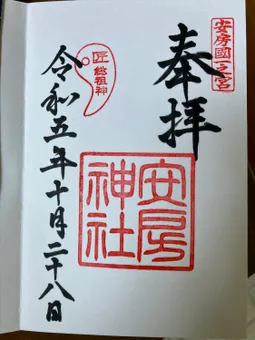 安房國一之宮
奉拝
安房
神社
匠 総祖神
令和五年十月二十八日